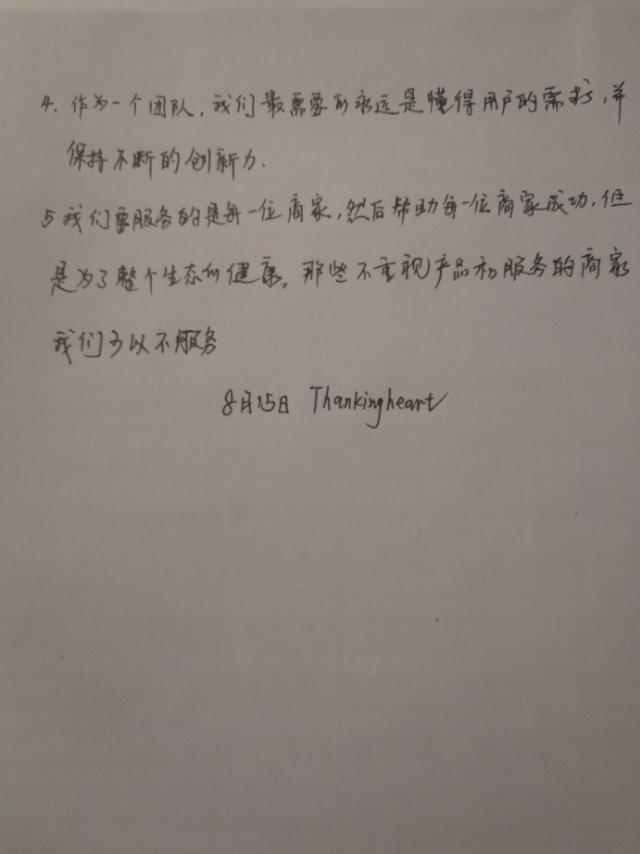 4. 作为一个团队,我们最需要的永远是懂得用户的需求,并
保持不断的创新力.
5 我们要服务的是每一位商家,然后帮助每一位商家成功,但
是为了整个生态的健康,那些不重视产品和服务的商家
我们可以不服务
8月15日 Thankingheart